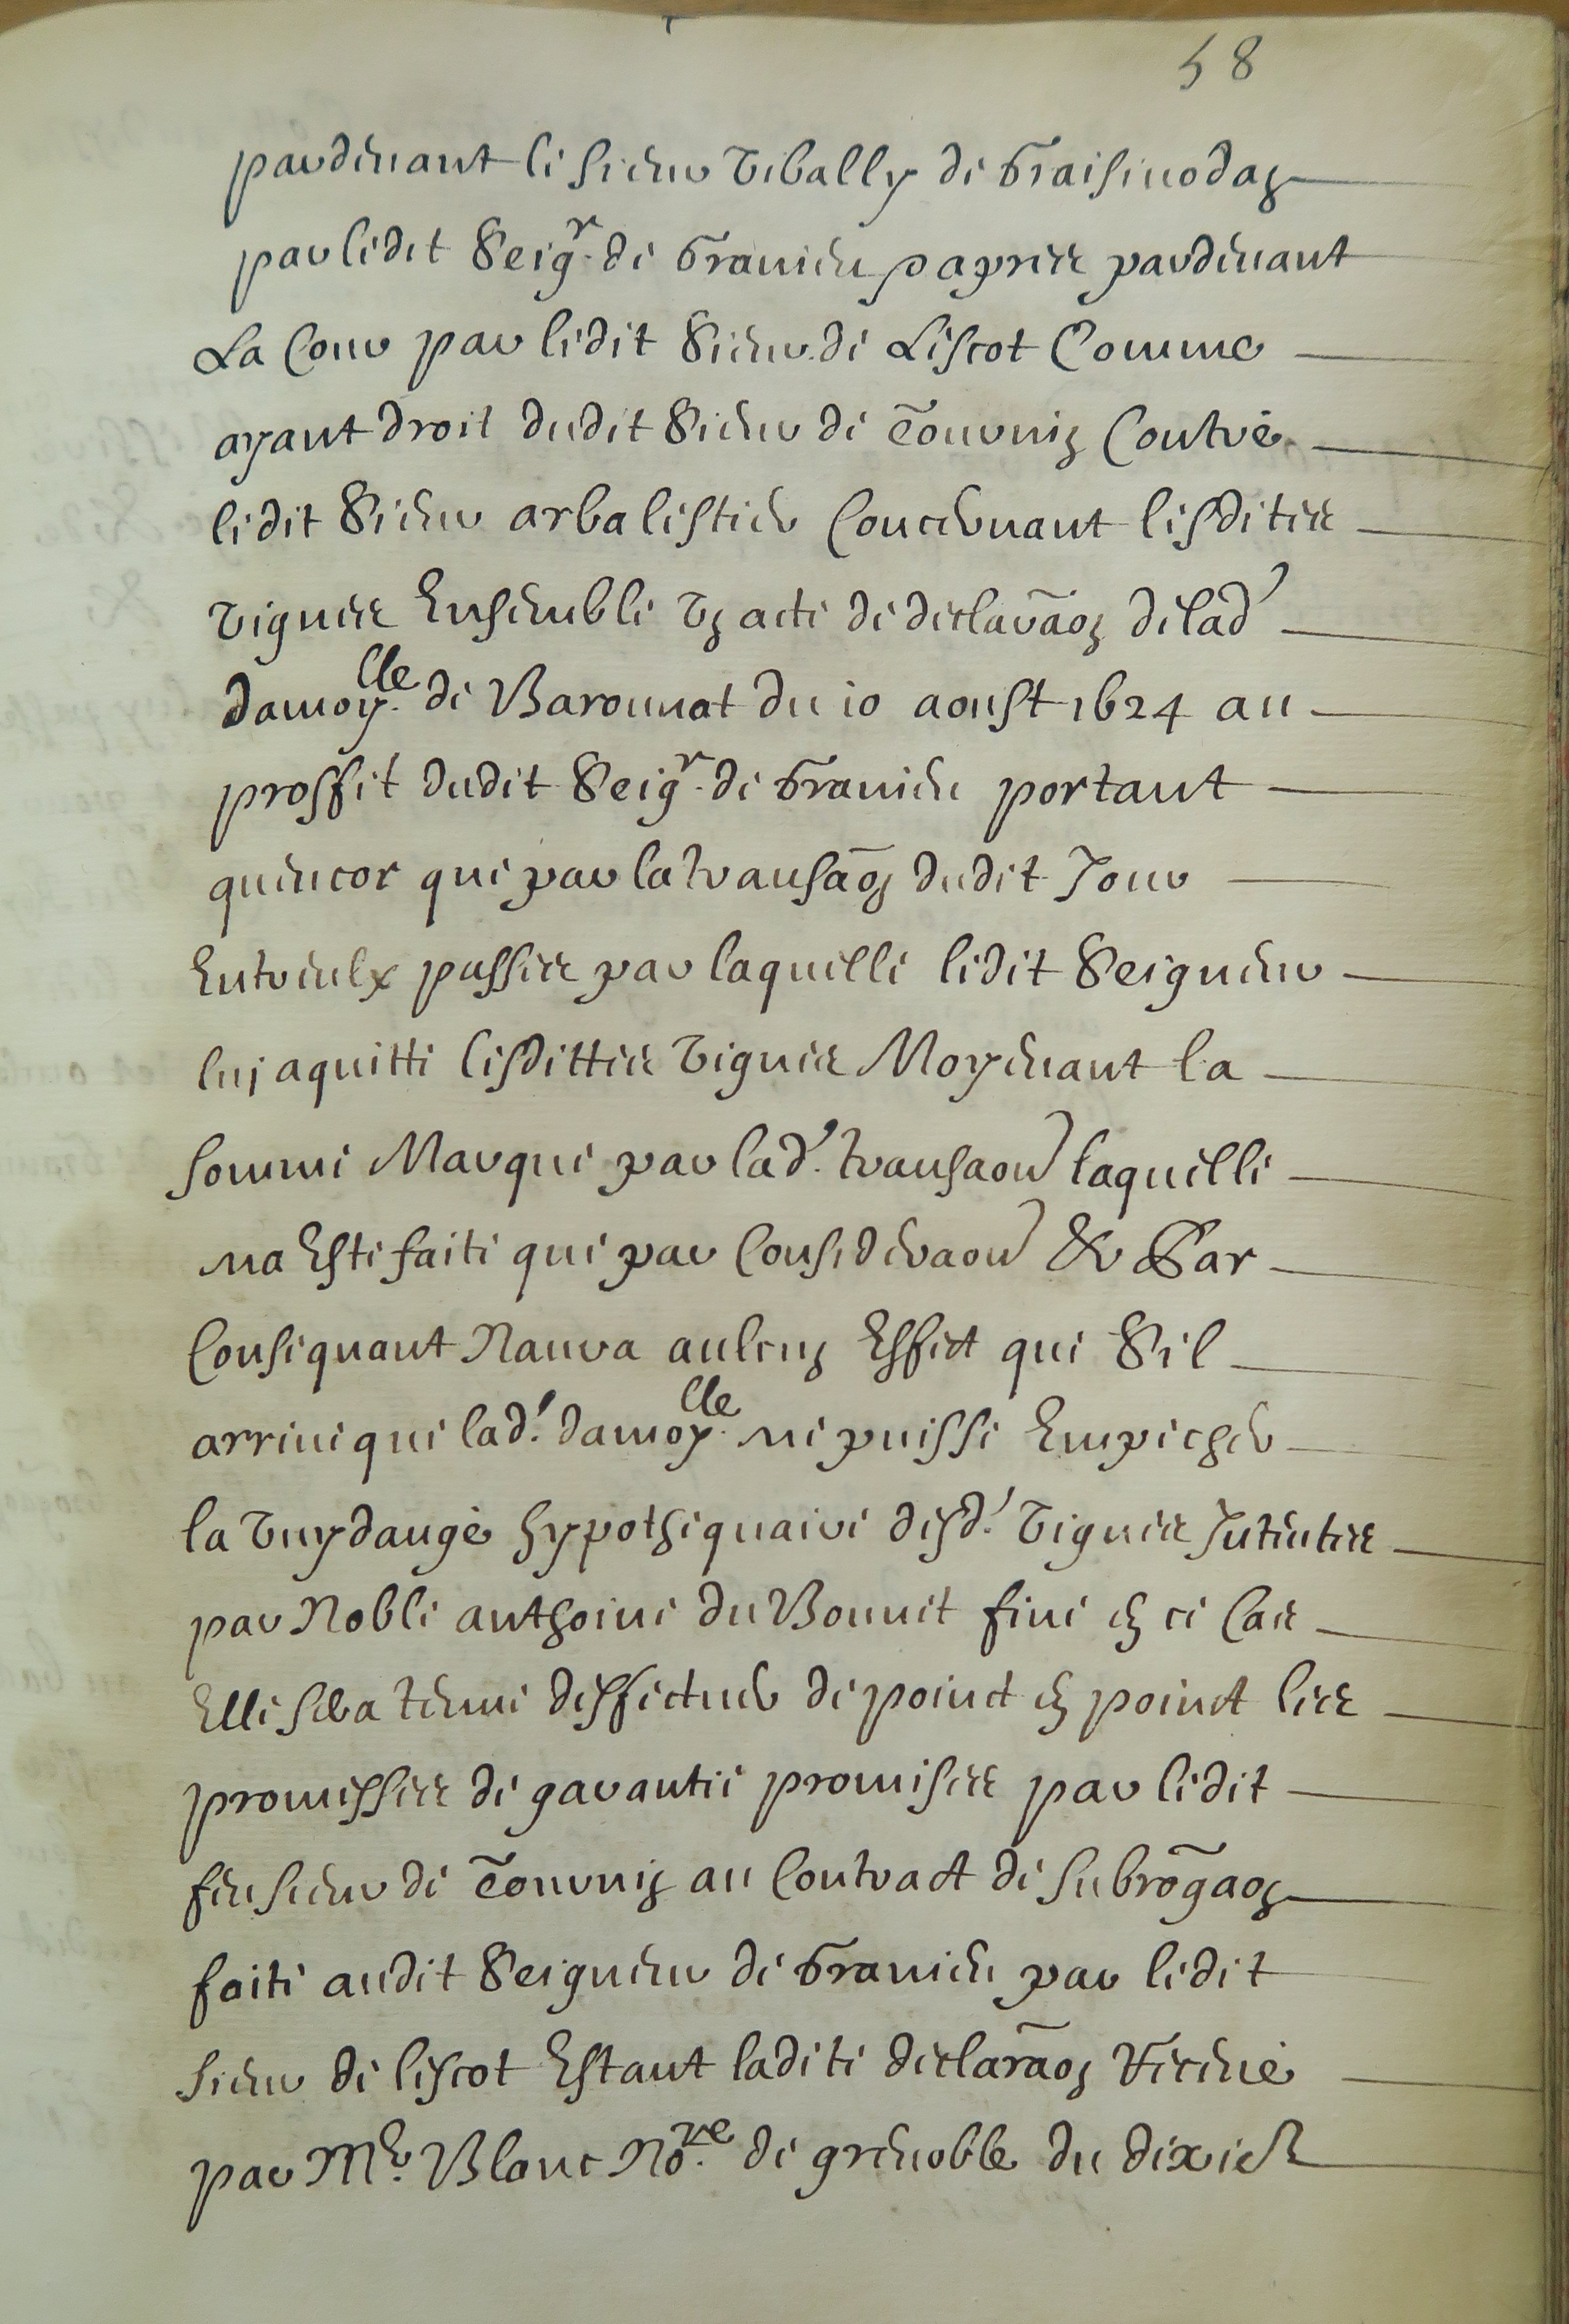 58
pardevant le sieur Vibally de Graisivodan
par ledit Seigr. de Granieu papries pardevant
La Cour par ledit Sieur de Lescot Comme
ayant droit dudit Sieur de Tournin Contre
ledit Sieur arbalestier Concernant lesdites
vignes Ensemble un acte de declaraon de lad'
damoylle. de Baronnat du 10 aoust 1624 au
proffit dudit Seigr. de Granieu portant
quencor que par la transaon dudit Jour
Entreulx passée par laquelle ledit Seigneur
luj aquitte lesdittes vignes Moyenant la
somme Marquée par lad'. transaon laquelle
na Esté faite que par Consideraon & Par
Consequant Naura aulcun Effect que Sil
arrive que lad'. damoylle. ne puisse Empecher
la vuydange hypothequaire desd'. vignes Intentée
par Noble anthoine du Bonnet fine en ce Cas
Elle sera tenue deffectuer de poinct en poinct les
promesses de garantie promises par ledit
feu sieur de Tournin au Contract de subrogaon
faite audit Seigneur de Granieu par ledit
sieur de lescot Estant ladite declaraon Receue
par Me. Blanc Nore. de grenoble du dixies